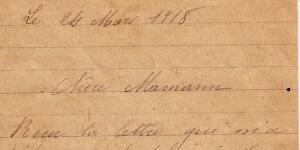 Le 24 Mars 1918
Chère Mamann
Reçu ta lettre qui m'a